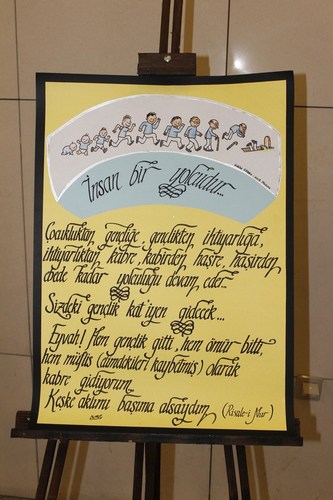 İnsan bir yolcudur...
Çocukluktan, gençliğe, gençlikten, ihtiyarlığa,
ihtiyarlıktan, kabre, kabirden, haşre, haşirden,
ebede kadar yolculuğu devam eder.
Sizdeki gençlik kat'iyen gidecek...
Eyvah! Hem gençlik gitti, hem ömür bitti,
hem müflis (elimdekileri kaybetmiş) olarak
kabre gidiyorum
Keşke aklımı başıma alsaydım. (Risale-i Nur)